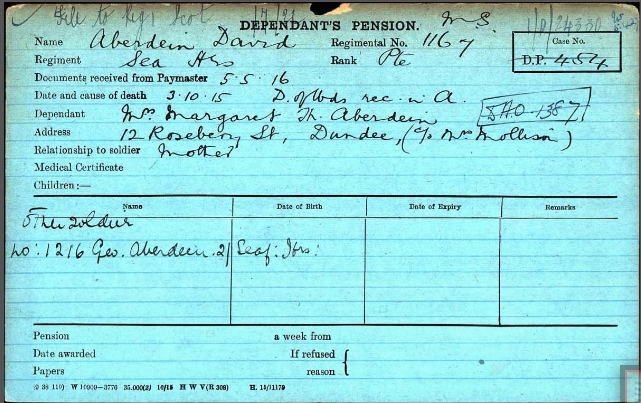 File to Regt Scot
DEPENDANT'S PENSION. M.S.
Name Aberdein David Regimental No. 1167 Case No.
Regiment Sea Hrs Rank Pte D.P. 454
Documents received from Paymaster 5.5.16
Date and cause of death 3.10.15 D. of Wds rec. in A.
Dependant Mrs Margaret Th. Aberdein S.A.O. 1387
Address 12 Rosebery St, Dundee, (c/o Mrs Mollison)
Relationship to soldier Mother
Medical Certificate
Children:—
Name Date of Birth Date of Expiry Remarks
Other Soldier
No: 1216 Geo. Aberdein. 2/ Seaf: Hrs:
Pension a week from
Date awarded If refused
Papers reason
(9 38 110) W 10909—3776 35,000(2) 10/15 H W V(R 308) H. 15/11179